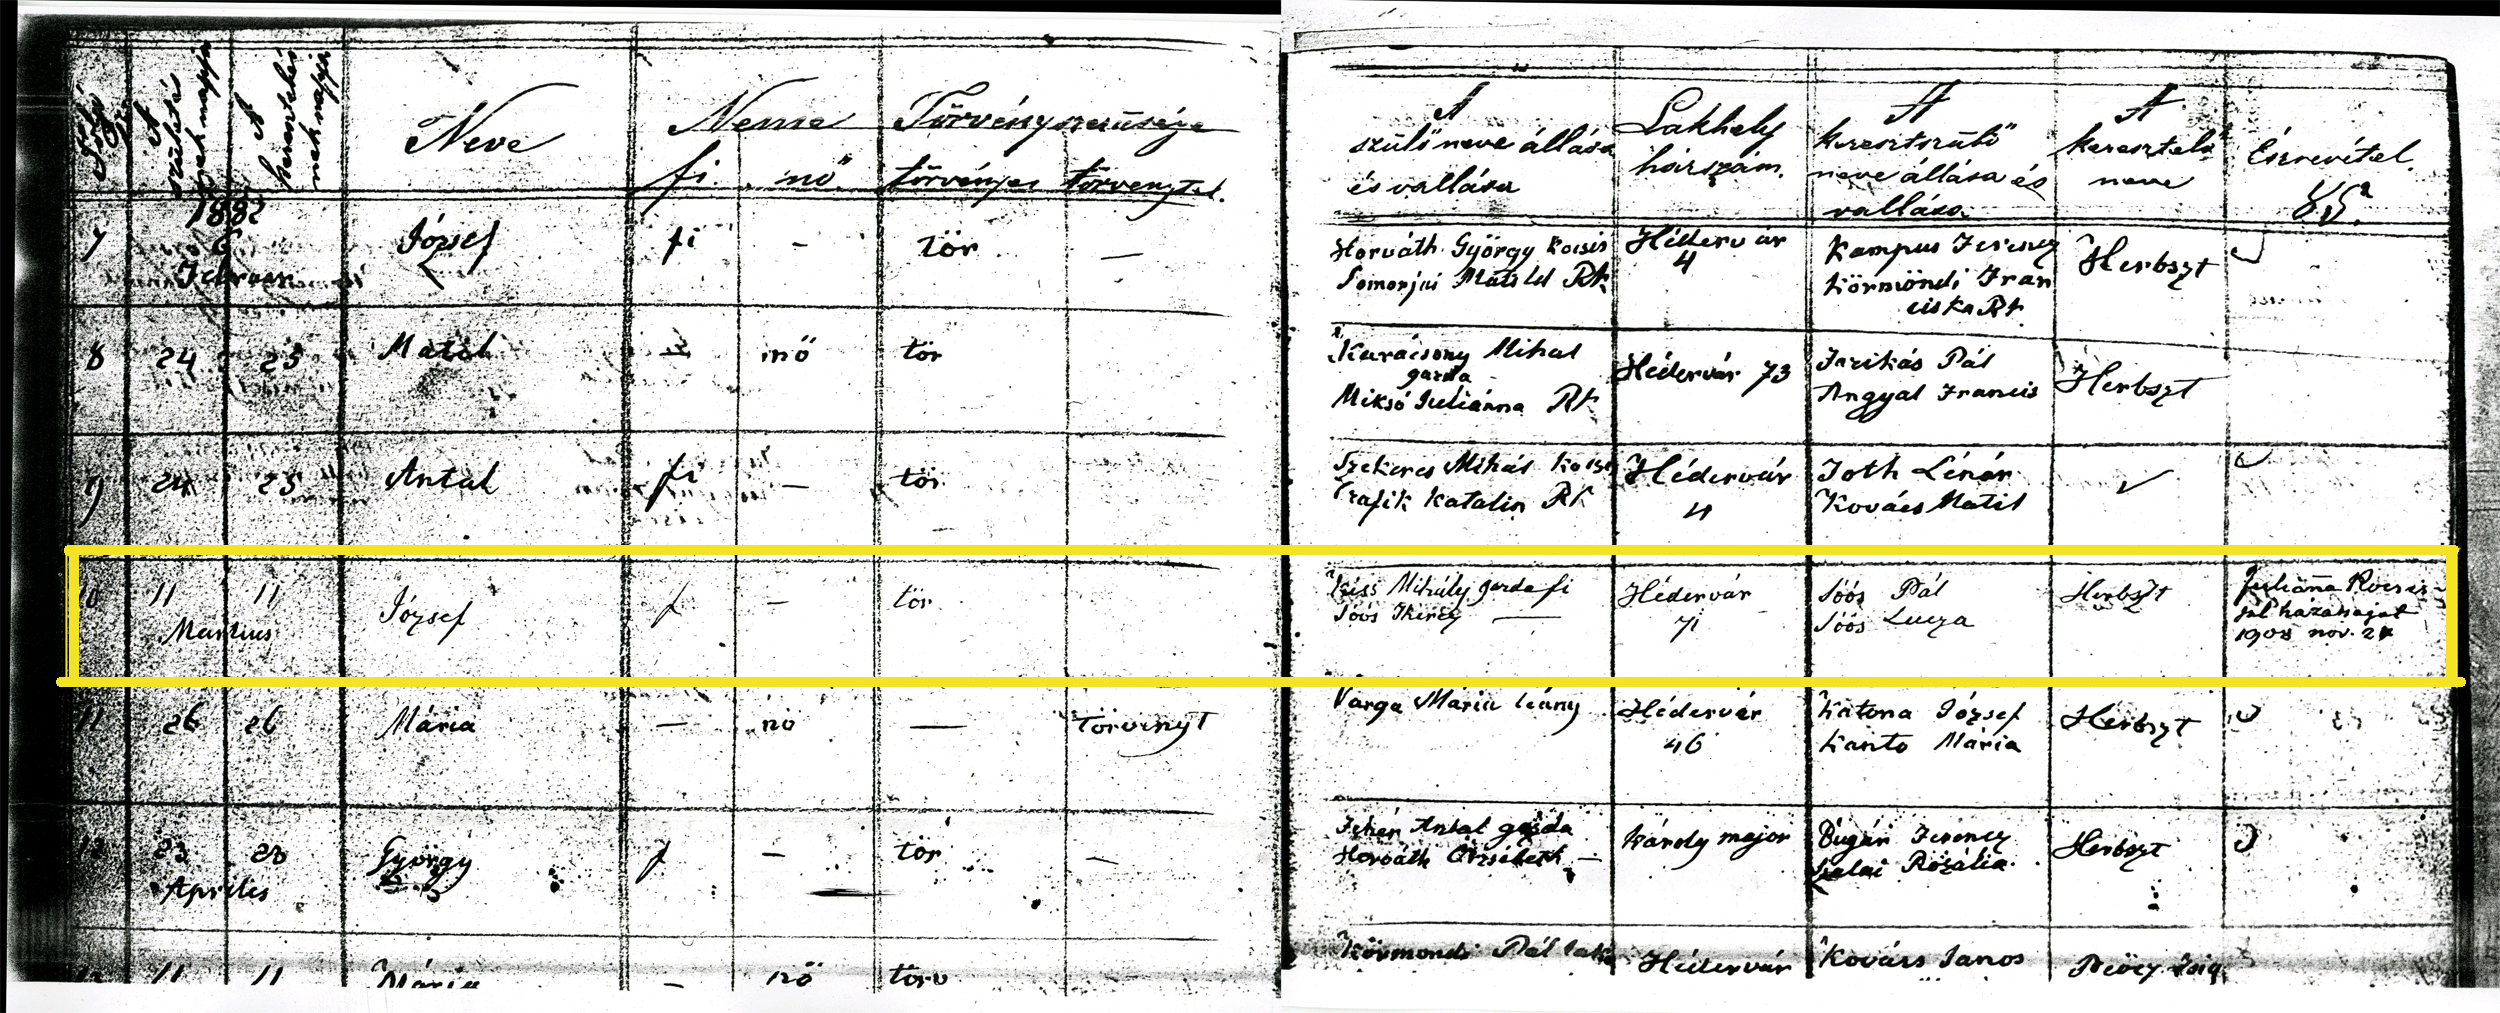 Folyó sz
A születés
A keresztelés
nek napja
Neve
Neme
fi. nő
Törvényszerüsége
törvényes törvénytel.
A
szülő neve állása
és vallása
Lakhely
házszám.
A
keresztszülő
neve állása és
vallása
A
keresztelő
neve
Észrevétel.
1882
7 6 József fi - tör —
Februar
Horváth György kocsis Hédervár Kampus Ferencz Herbszt
Somorjai Matild Rk 4 Körmöndi Fran
ciska Rk
8 24 25 Matil — nő tör
Karácsony Mihal Hédervár 73 Farikás Pál Herbszt
gazda
Miksó Juliánna Rk Angyal Francis
9 24 25 Antal fi — tör
Szekeres Mihál kocsi Hédervár Toth Lénár
Czafik Katalin Rk 4 Kovács Matil
10 11 11 József f — tör
Martius
Kiss Mihály gazda fi Hédervár Sóós Pál Herbszt Juliánna
Sóós Therez — 71 Sóós Lucza
1908 nov. 24
11 26 26 Mária — nő — törvényt
Varga Mária leány Hédervár Katona József Herbszt
46 Kanto Mária
12 23 23 György f — tör —
Aprilis
Fehér Antal gazda Károly major Bugár Ferencz Herbszt
Horváth Orzsébeth — Szalai Rozália
11 11 Mária — nő törv
Körmöndi Pál Hédervár Kovács János